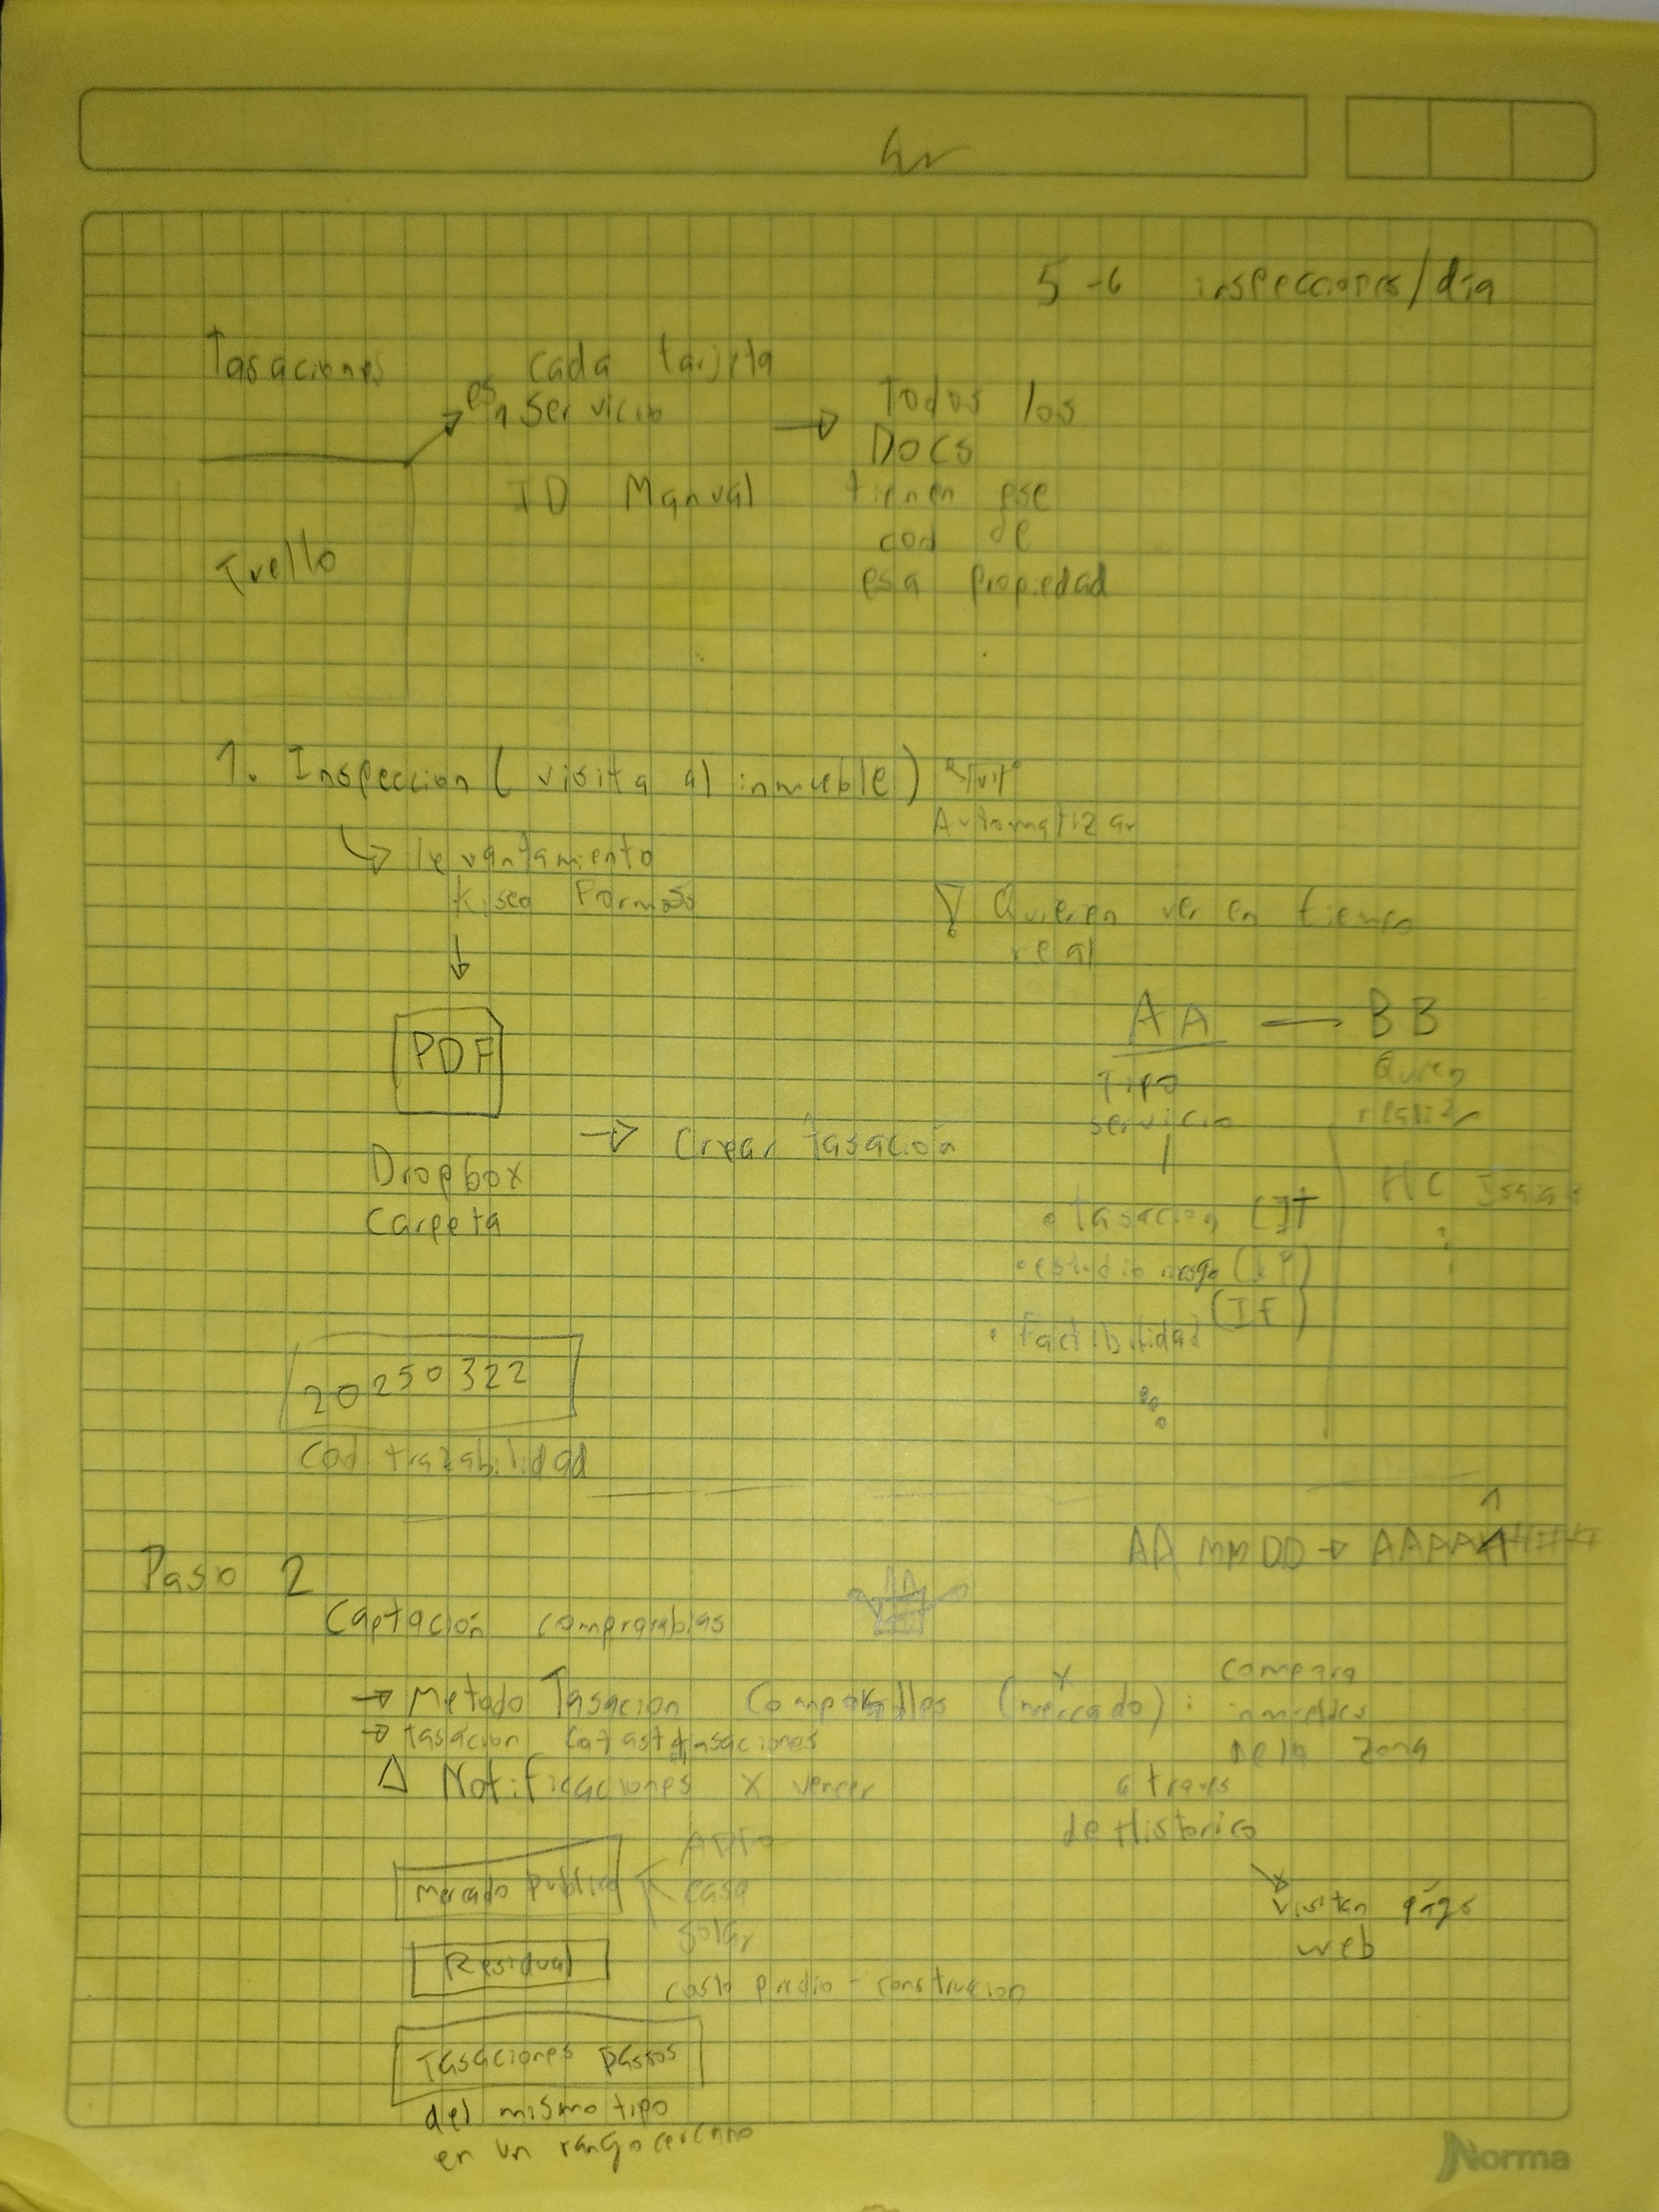 5-6 inspecciones/día
Tasaciones
cada tarjeta
es 1 servicio
ID Manual
Todos los
DOCS
tienen ese
cod de
esa propiedad
Trello
1. Inspeccion (visita al inmueble)
Automatizar
levantamiento
Formato
Quieren ver en tiempo
real
PDF
Dropbox
Carpeta
→ Crear tasación
AA — BB
Tipo
servicio
Quien
realiza
HC Isaias
• tasacion (IT
• estudio riesgo
• Factibilidad (IF)
20250322
Cod trazabilidad
AA MM DD → AAAA
Paso 2
Captación
→ Metodo Tasacion Comparables (mercado) :
compara
inmuebles
de la zona
→ tasacion
Δ Notificaciones x vencer
a traves
de Historico
visitan págs
web
mercado publico
Apto
casa
solar
Residual
costo predio - construcion
Tasaciones
del mismo tipo
en un rango cercano
Norma